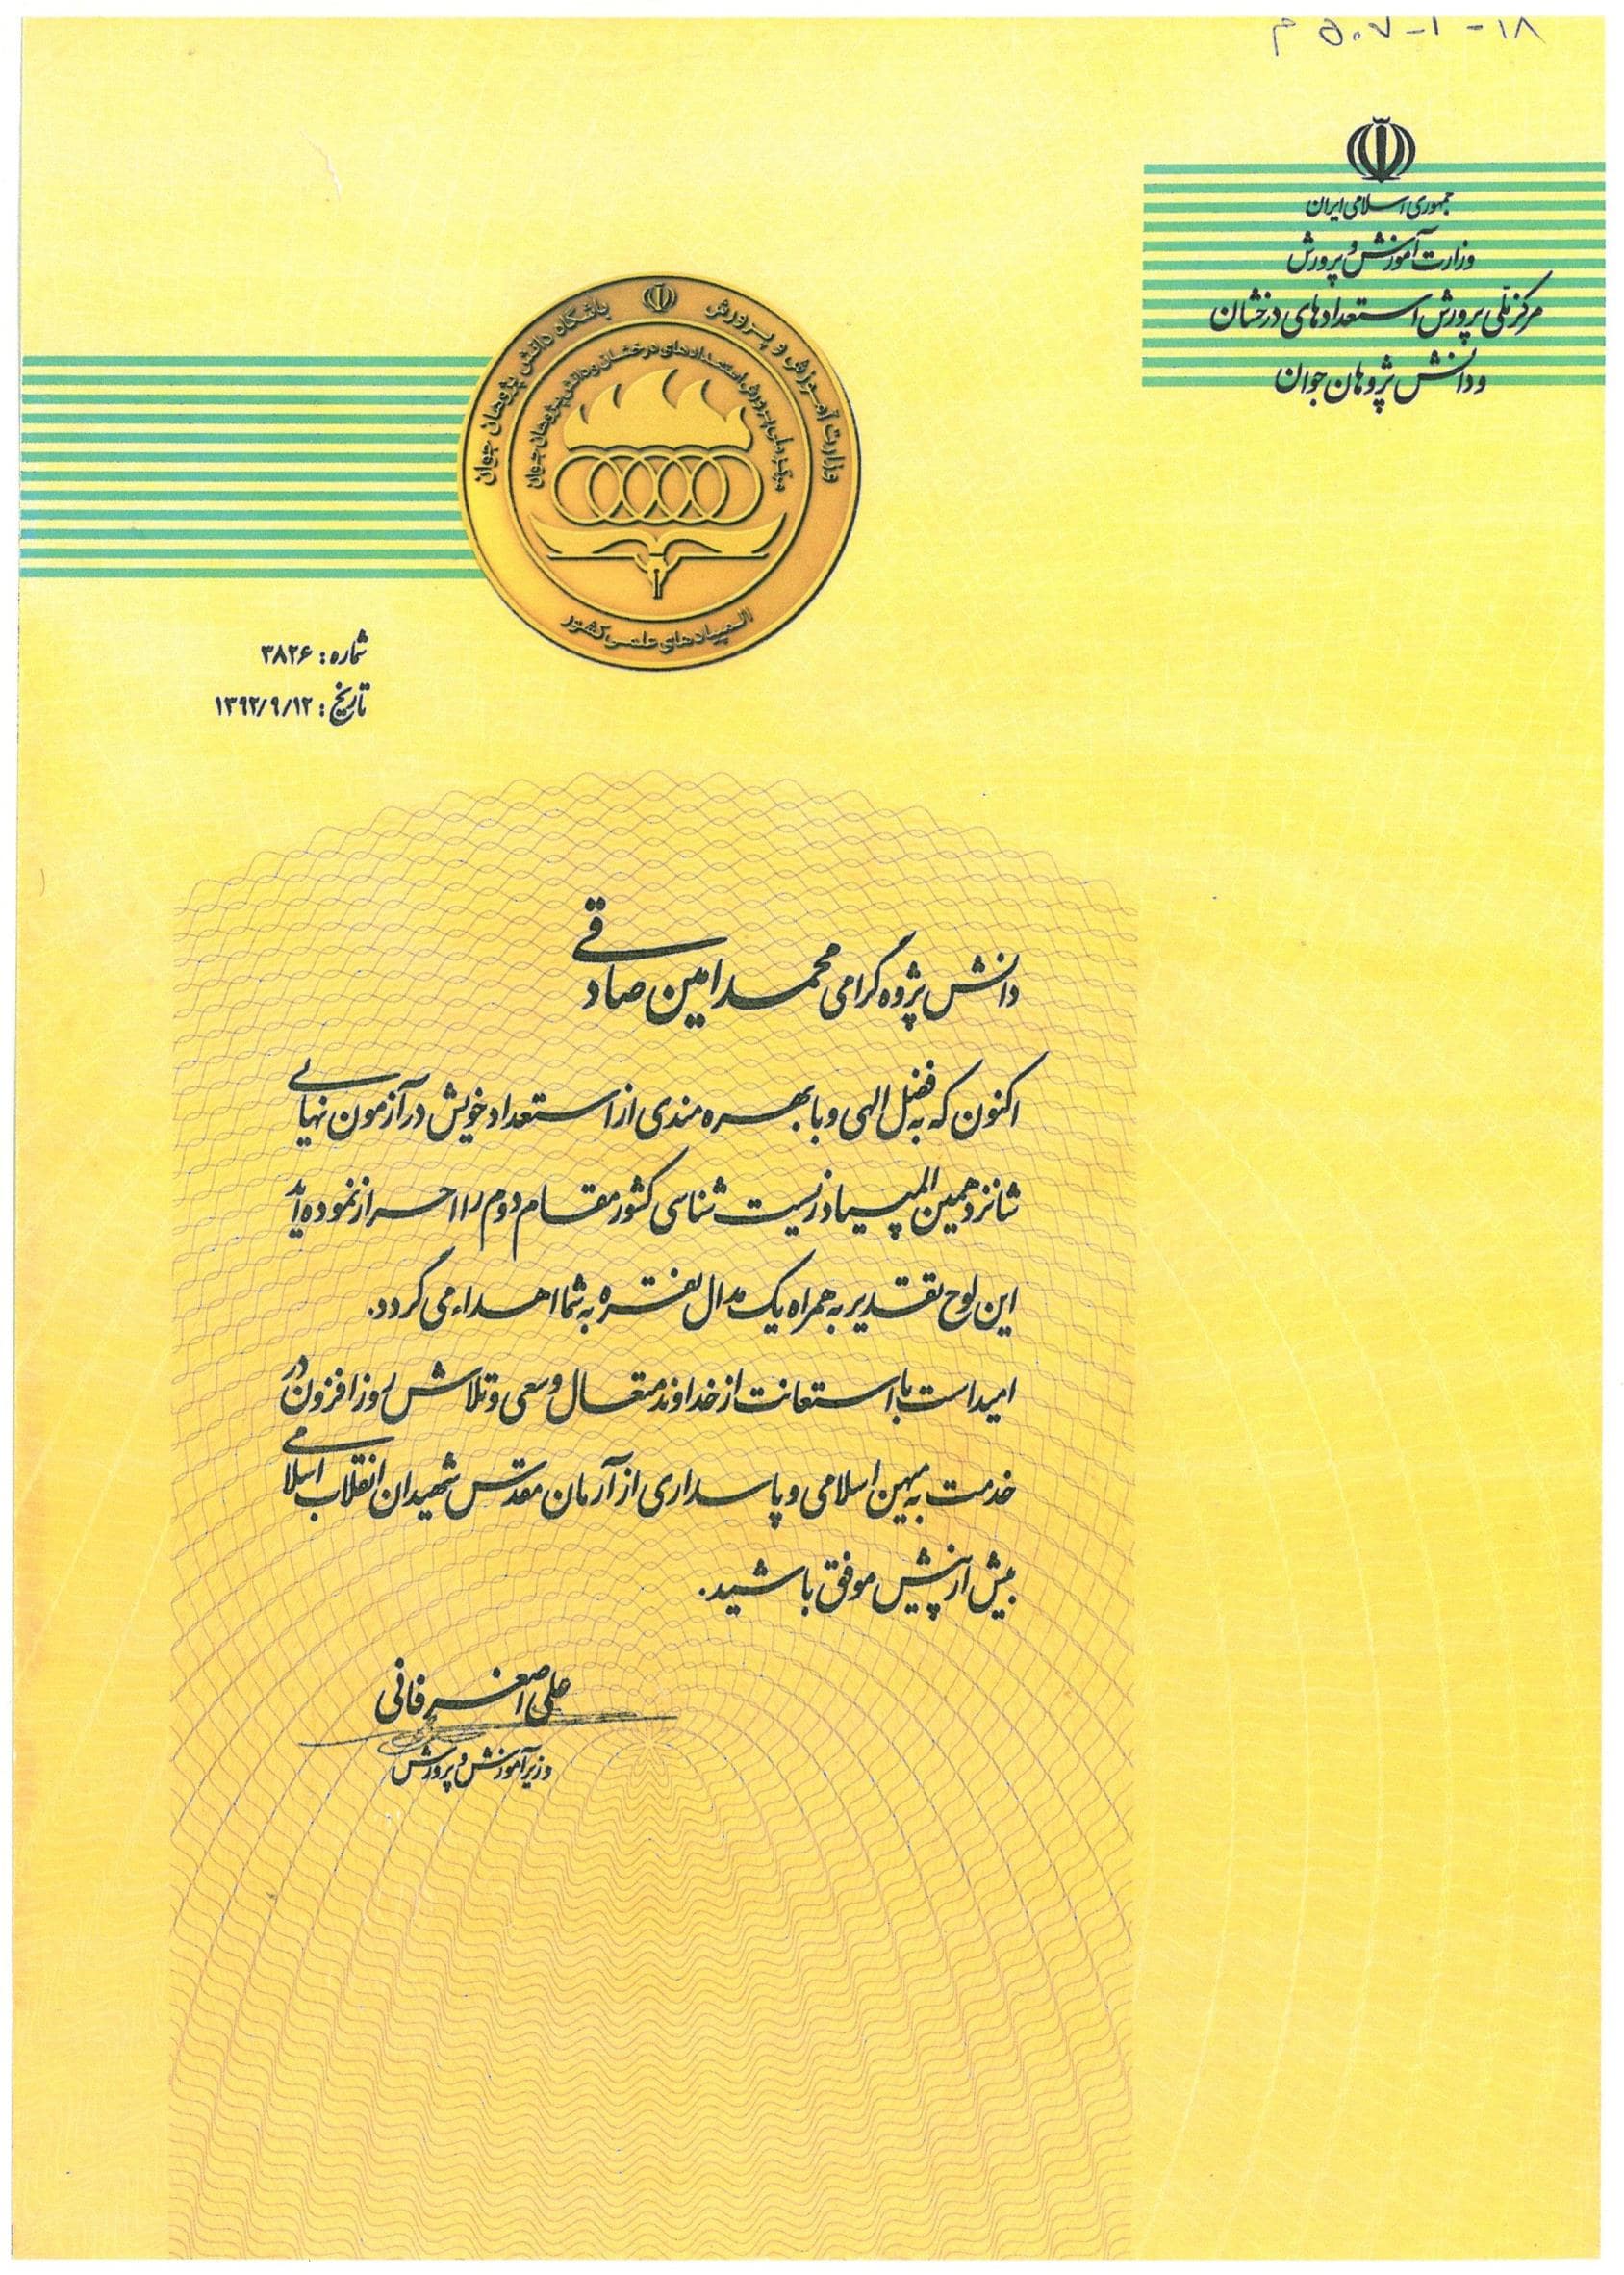 ۱۸-۱-۵۰۷ م
جمهوری اسلامی ایران
وزارت آموزش و پرورش
مرکز ملّی پرورش استعدادهای درخشان
و دانش پژوهان جوان
وزارت آموزش و پرورش
باشگاه دانش پژوهان جوان
مرکز ملی پرورش استعدادهای درخشان و دانش پژوهان جوان
المپیادهای علمی کشور
شماره: ۳۸۲۶
تاریخ: ۱۳۹۲/۹/۱۲
دانش پژوه گرامی محمد امین صادقی
اکنون که به فضل الهی و با بهره مندی از استعداد خویش در آزمون نهایی
شانزدهمین المپیاد زیست شناسی کشور مقام دوم را احراز نموده اید
این لوح تقدیر به همراه یک مدال نقره به شما اهداء می گردد.
امید است با استعانت از خداوند متعال و سعی و تلاش روز افزون در
خدمت به میهن اسلامی و پاسداری از آرمان مقدس شهیدان انقلاب اسلامی
بیش از پیش موفق باشید.
علی اصغر فانی
وزیر آموزش و پرورش